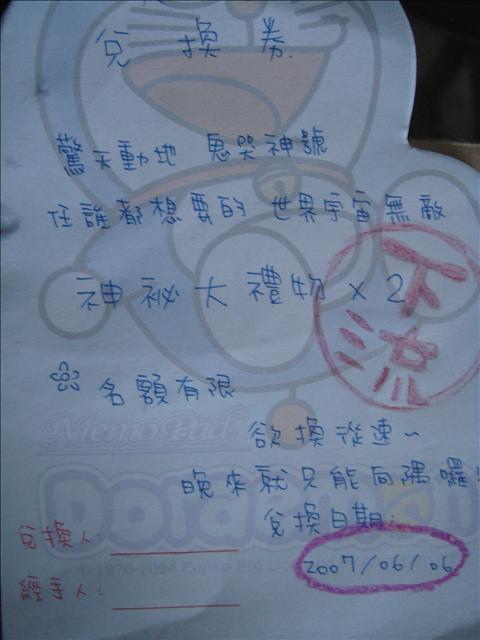 兌 換 券.
驚天動地 鬼哭神號
任誰都想要的 世界宇宙無敵
神祕大禮物 x 2
下流
名額有限
欲換從速~
晚來就只能向隅囉!
兌換日期:
2007/06/06
兌換人:
經手人:
Memo Pad
Doraemon
© 1970-2004 Fujiko Pro